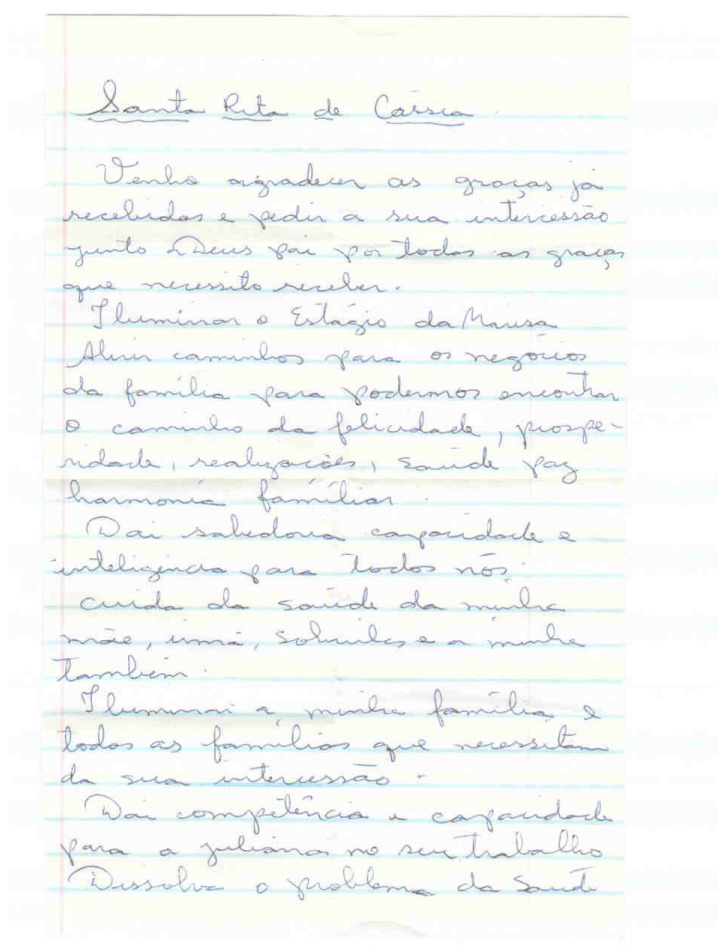 Santa Rita de Cássia
Venho agradecer as graças já
recebidas e pedir a sua intercessão
junto a Deus pai por todas as graças
que necessito receber.
Iluminar o Estágio da
Abrir caminhos para os negócios
da família para podermos encontrar
o caminho da felicidade, prospe-
ridade, realizações, saúde paz
harmonia famíliar.
Dai sabedoria capacidade e
inteligência para todos nós.
cuida da saúde da minha
mãe, irmã, sobrinhos e a minha
também.
Iluminai a minha família e
todas as famílias que necessitam
da sua intercessão.
Dai competência e capacidade
para a juliana no seu trabalho
Dissolva o problema da Saúde